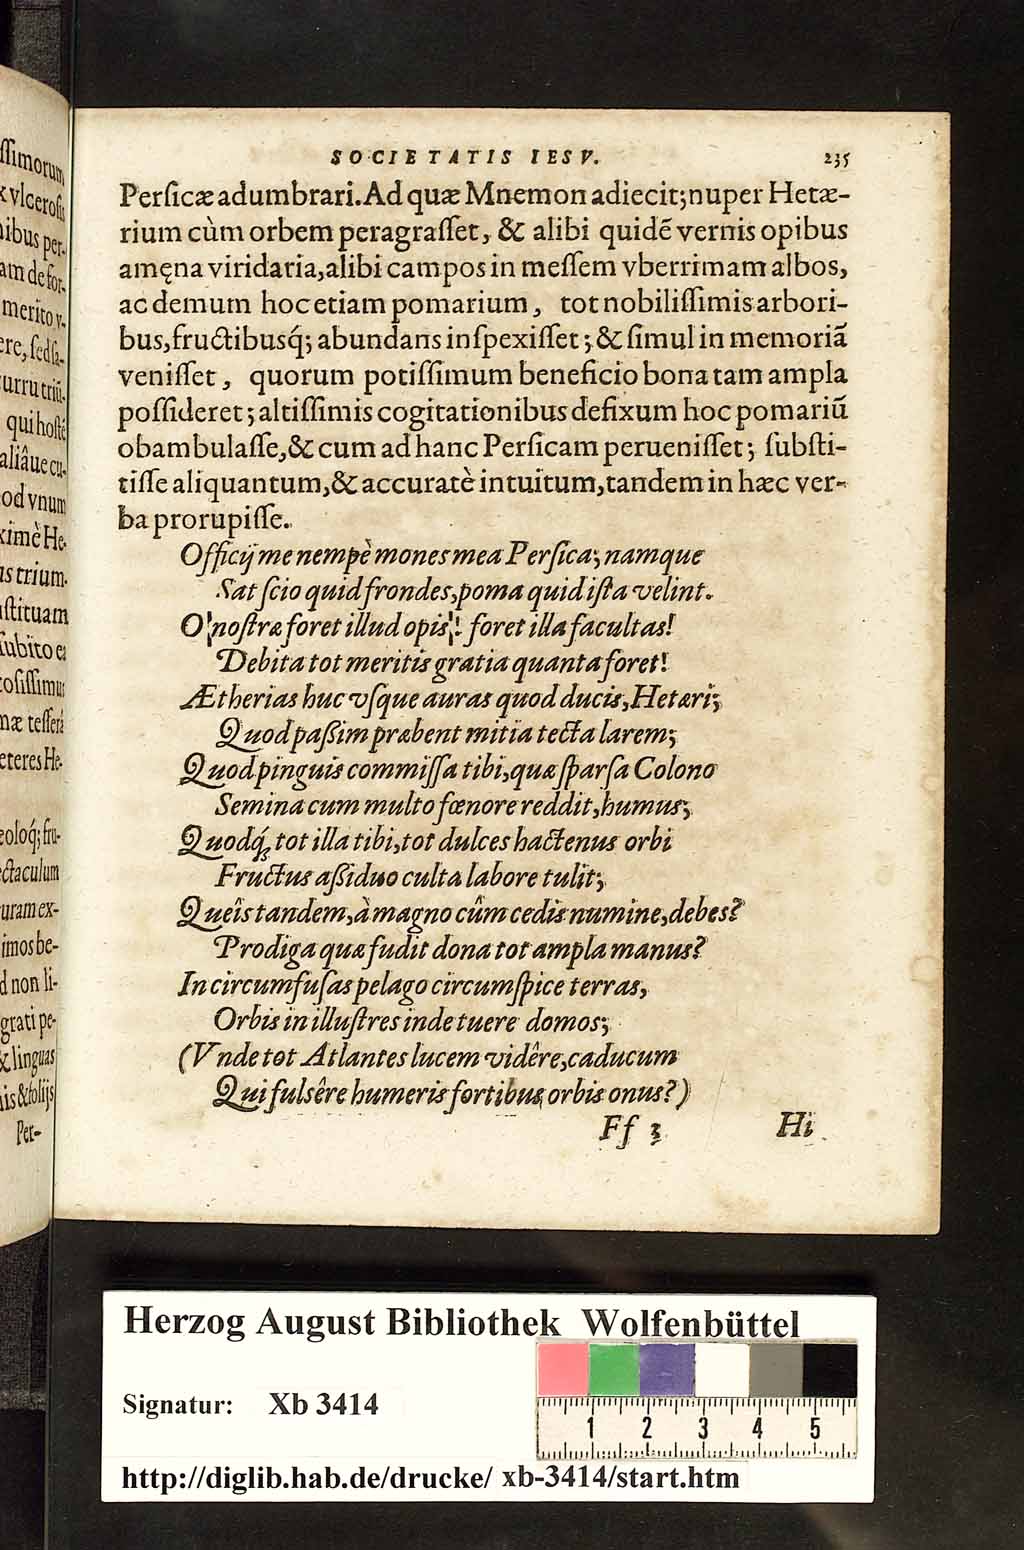 ssimorum
x vlcerosis
nibus per-
am de for-
merito v-
ere, sed sa-
urru triũ-
qui hosté
aliâue cu-
od vnum
ximè He-
us trium-
stituam
subito ea
tosissimus
mæ tesserâ
eteres He-
eoloq́; fru-
ectaculum
uram ex-
imos be-
d non li-
grati pe-
& linguas
is & folijs
Per-
SOCIETATIS IESV. 235
Persicæ adumbrari. Ad quæ Mnemon adiecit; nuper Hetæ-
rium cùm orbem peragrasset, & alibi quidẽ vernis opibus
amęna viridaria, alibi campos in messem vberrimam albos,
ac demum hoc etiam pomarium, tot nobilissimis arbori-
bus, fructibusq́; abundans inspexisset; & simul in memoriã
venisset, quorum potissimum beneficio bona tam ampla
possideret; altissimis cogitationibus defixum hoc pomariũ
obambulasse, & cum ad hanc Persicam peruenisset; substi-
tisse aliquantum, & accuratè intuitum, tandem in hæc ver-
ba prorupisse.
Officij me nempè mones mea Persica; namque
Sat scio quid frondes, poma quid ista velint.
O! nostræ foret illud opis! foret illa facultas!
Debita tot meritis gratia quanta foret!
Ætherias huc vsque auras quod ducis, Hetæri;
Quod passim præbent mitia tecta larem;
Quod pinguis commissa tibi, quæ sparsa Colono
Semina cum multo fœnore reddit, humus;
Quodq́; tot illa tibi, tot dulces hactenus orbi
Fructus assiduo culta labore tulit;
Queîs tandem, à magno cûm cedis numine, debes?
Prodiga quæ fudit dona tot ampla manus?
In circumfusas pelago circumspice terras,
Orbis in illustres inde tuere domos;
(Vnde tot Atlantes lucem vidêre, caducum
Qui fulsêre humeris fortibus orbis onus?)
Ff 3 Hi
Herzog August Bibliothek Wolfenbüttel
Signatur: Xb 3414
1 2 3 4 5
http://diglib.hab.de/drucke/ xb-3414/start.htm